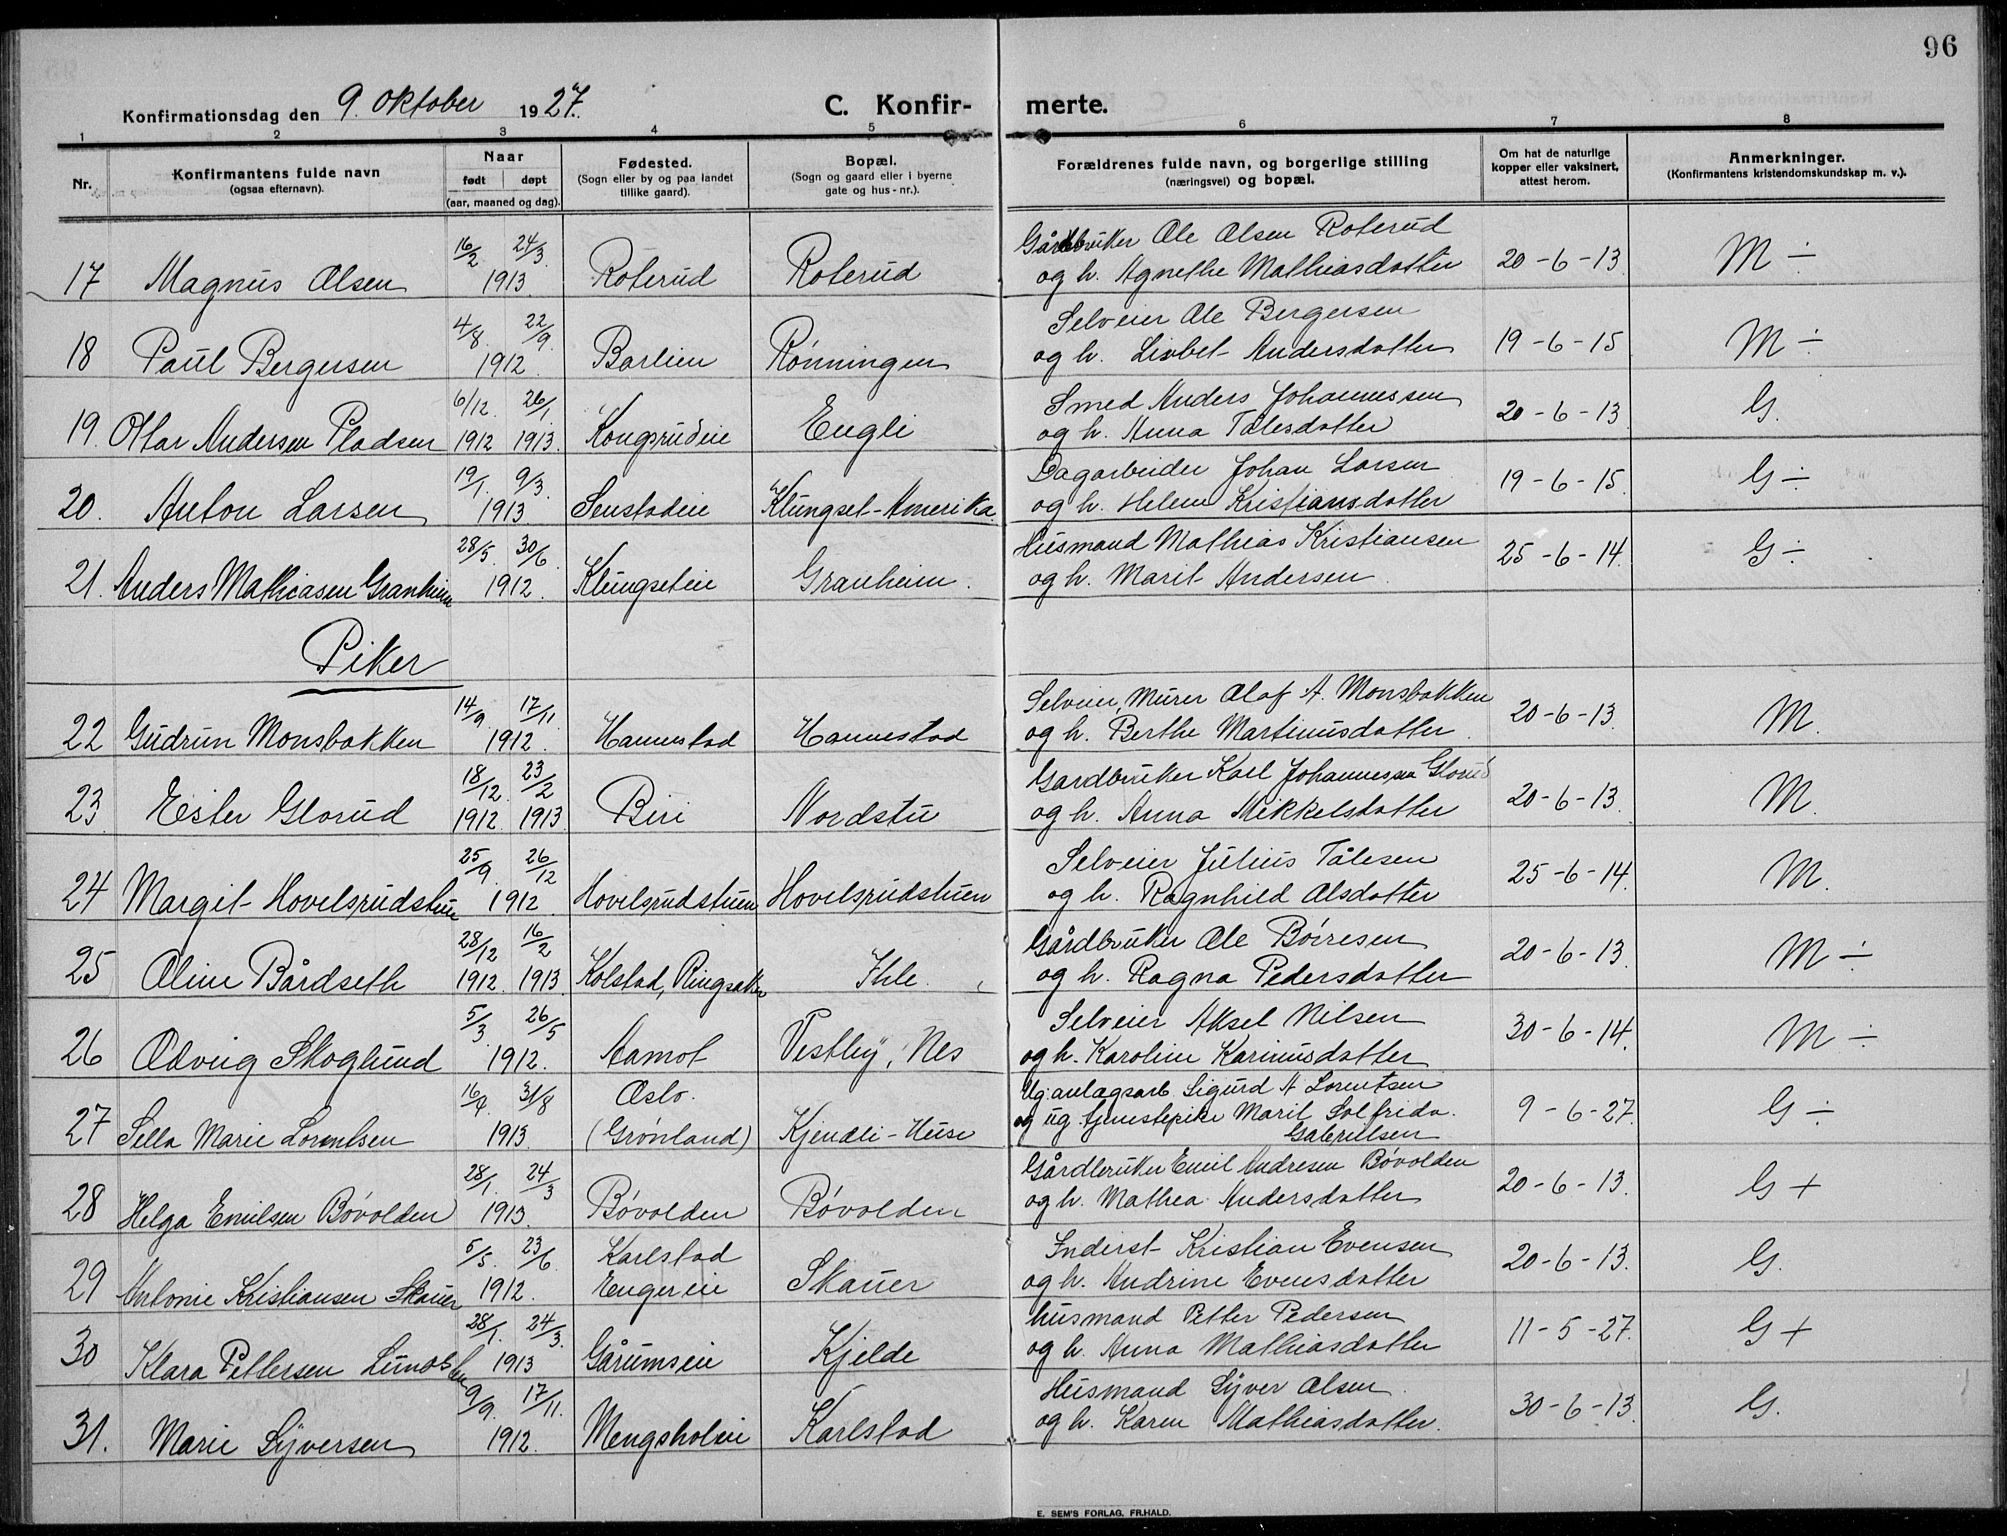 96
Konfirmationsdag den 9. Oktober 1927.
C. Konfir- merte.
1 2 3 4 5 6 7 8
Nr.
Konfirmantens fulde navn
(ogsaa efternavn).
Naar
født døpt
(aar, maaned og dag).
Fødested.
(Sogn eller by og paa landet
tillike gaard).
Bopæl.
(Sogn og gaard eller i byerne
gate og hus-nr.).
Forældrenes fulde navn, og borgerlige stilling
(næringsvei) og bopæl.
Om hat de naturlige
kopper eller vaksinert,
attest herom.
Anmerkninger.
(Konfirmantens kristendomskundskap m. v.).
17 Magnus Olsen 16/2 24/3 1913. Roterud Roterud Gårdbruker Ole Olsen Roterud
og h. Agnethe Mathiasdotter 20-6-13. M ÷
18 Paul Bergersen 4/8. 22/9. 1912. Barlien Rønningen Selveier Ole Bergersen
og h. Lisbet Andersdotter 19-6-15 M ÷
19. Ottar Andersen Pladsen 6/12. 26/1 1912 1913. Kongsrudeie Engli Smed Anders Johannessen
og h. Anna Tålesdotter 20-6-13. G.
20. Anton Larsen 19/1. 9/3. 1913 Senstadeie Klungset-Amerika Dagarbeider Johan Larsen
og h. Helene Kristiansdotter 19-6-15. G ÷
21. Anders Mathiasen Granheim 28/5. 30/6. 1912. Klungseteie Granheim. Husmand Mathias Kristiansen
og h. Marit Andersen. 25-6-14. G ÷
Piker
22 Gudrun Monsbakken 14/9. 17/11 1912. Hannestad Hannestad Selveier, Murer Olof A. Monsbakken
og h. Berthe Martinusdotter. 20-6-13. M.
23 Ester Glorud 18/12. 23/2 1912. 1913. Biri Nordstu Gardbruker Karl Johannessen Glorud
og h. Anna Mikkelsdotter 20-6-13. M.
24 Margit Hovelsrudstuen 25/9. 26/12 1912. Hovelsrudstuen Hovelsrudstuen Selveier Julius Tålesen
og h. Ragnhild Olsdotter 25-6-14. M.
25 Oline Bårdseth 28/12 16/2 1912. 1913. Kolstad, Ringsaker Ihle. Gårdbruker Ole Børresen
og h. Ragna Pedersdotter 20-6-13. M ÷
26 Odveig Skoglund 5/3. 26/5 1912. Aamot Vestby, Nes Selveier Aksel Nilsen
og h. Karoline Karinusdotter 30-6-14. M ÷
27 Sella Marie Lorentsen 16/4. 31/8 1913. Oslo.
(Grønland) Kjendli-Huse Ug. anlægsarb. Sigurd A Lorentsen
og ug. tjenestepike Marit Solfrida.
Gabrielsen 9-6-27. G ÷
28 Helga Emilsen Bøvolden 28/1. 24/3 1913. Bøvolden Bøvolden Gårdbruker Emil Andresen Bøvolden
og h. Mathea Andersdotter 20-6-13. G +
29 Antonie Kristiansen Skauer 5/5. 23/6. 1912. Karlstad
Engereie Skauer Inderst Kristian Evensen
og h. Andrine Evensdotter 20-6-13. G.
30 Klara Pettersen 28/1. 24/3. 1913 Gårumseie Kjelde husmand Petter Pedersen
og h. Anna Mathiasdotter 11-5-27. G +
31. Marie Syversen 9/9. 17/11. 1912. Mengsholeie Karlstad Husmand Syver Olsen.
og h. Karen Mathiasdotter. 30-6-13. G.
E. SEM'S FORLAG, FR.HALD.